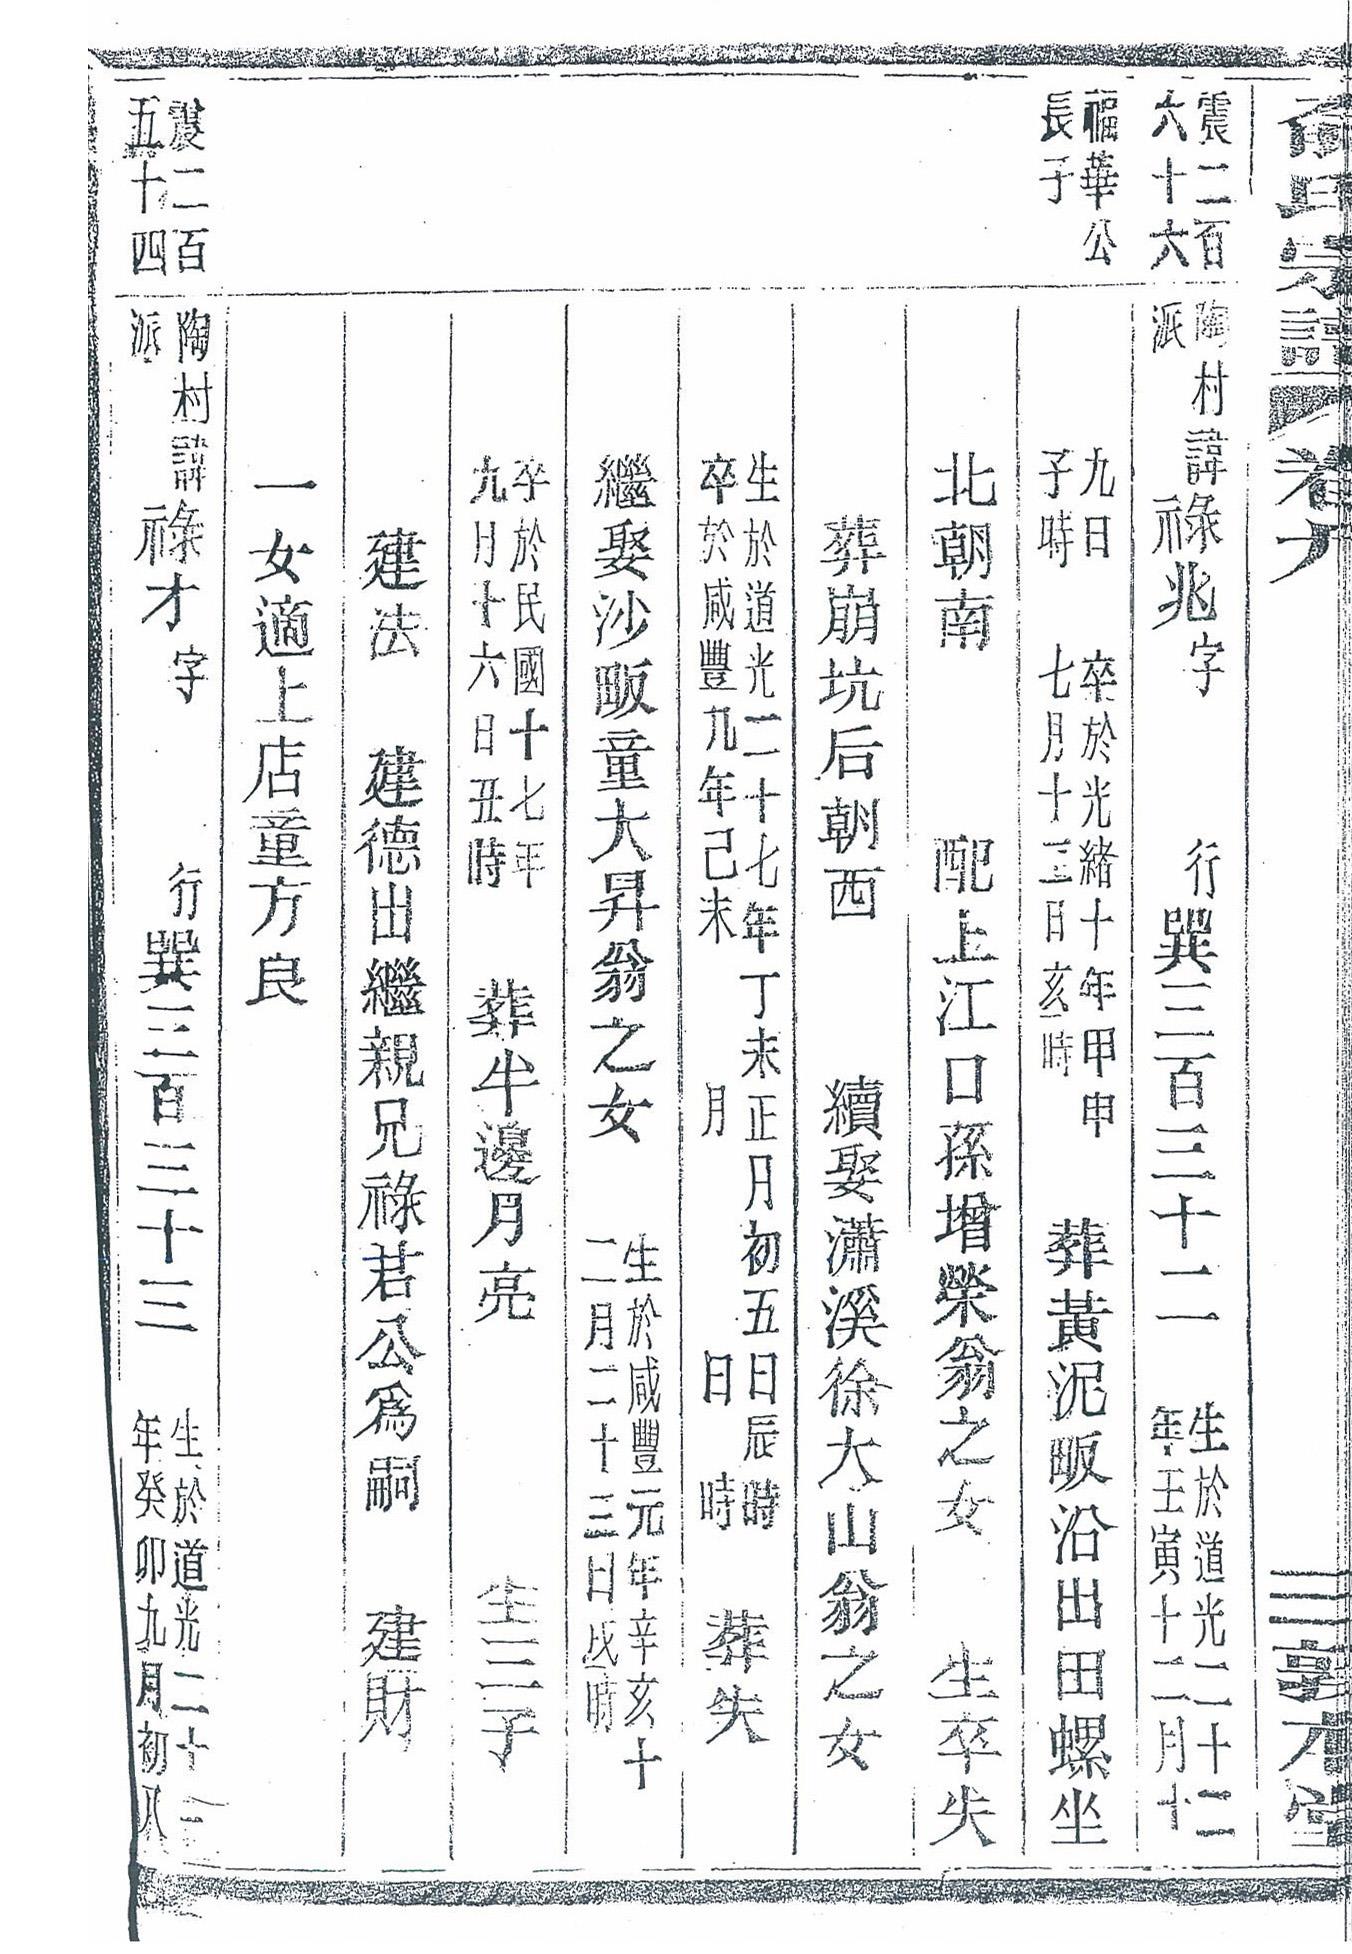 俞氏宗譜 卷六 三 敦本堂
震二百
六十六
陶村
派
諱祿兆 字 行巽三百三十二
生於道光二十二
年壬寅十二月十
福華公
長子
九日
子時
卒於光緒十年甲申
七月十三日亥時
葬黃泥畈沿出田螺坐
北朝南 配上江口孫增榮翁之女 生卒失
葬崩坑后朝西 續娶瀟溪徐大山翁之女
生於道光二十七年丁未正月初五日辰時
卒於咸豐九年己未 月 日 時
葬失
繼娶沙畈童大昇翁之女
生於咸豐元年辛亥十
二月二十三日戌時
卒於民國十七年
九月十六日丑時
葬牛邊月亮 生三子
建法 建德出繼親兄祿君公爲嗣 建財
一女適上店童方良
震二百
五十四
陶村
派
諱祿才 字 行巽三百三十三
生於道光二十三
年癸卯九月初八